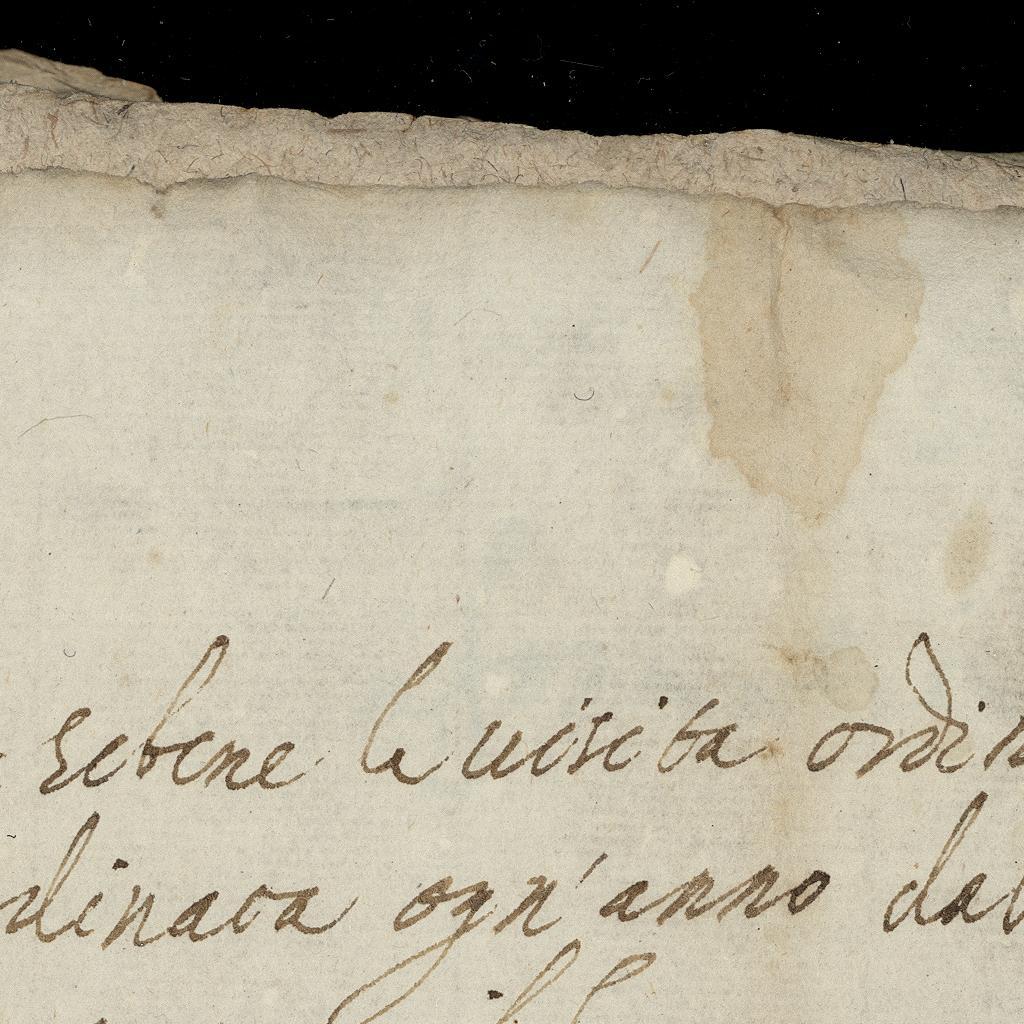 sebene la uisita ordin
dinata ogn' anno dal